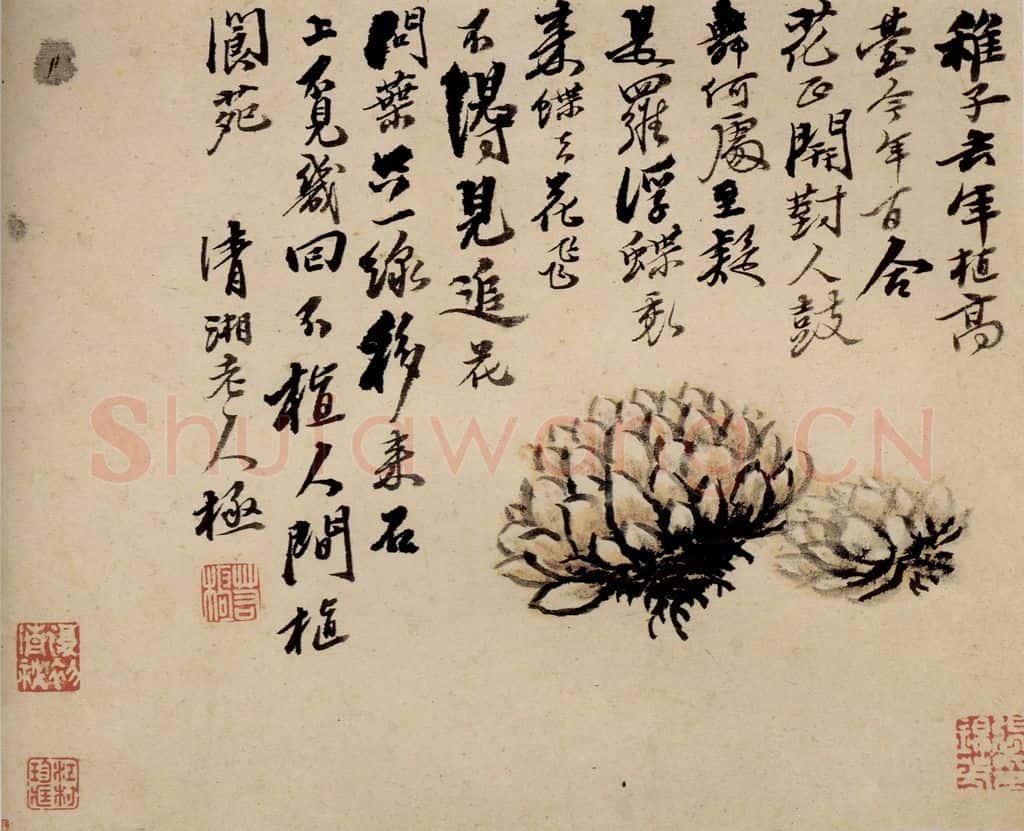 稚子去年植高
臺今年百合
花正開對人鼓
舞何處至疑
是羅浮蝶
來蝶去花飛
不得見追花
問葉只一線移來石
上覓幾回不植人間植
閬苑
清湘老人極
Shufawang.CN